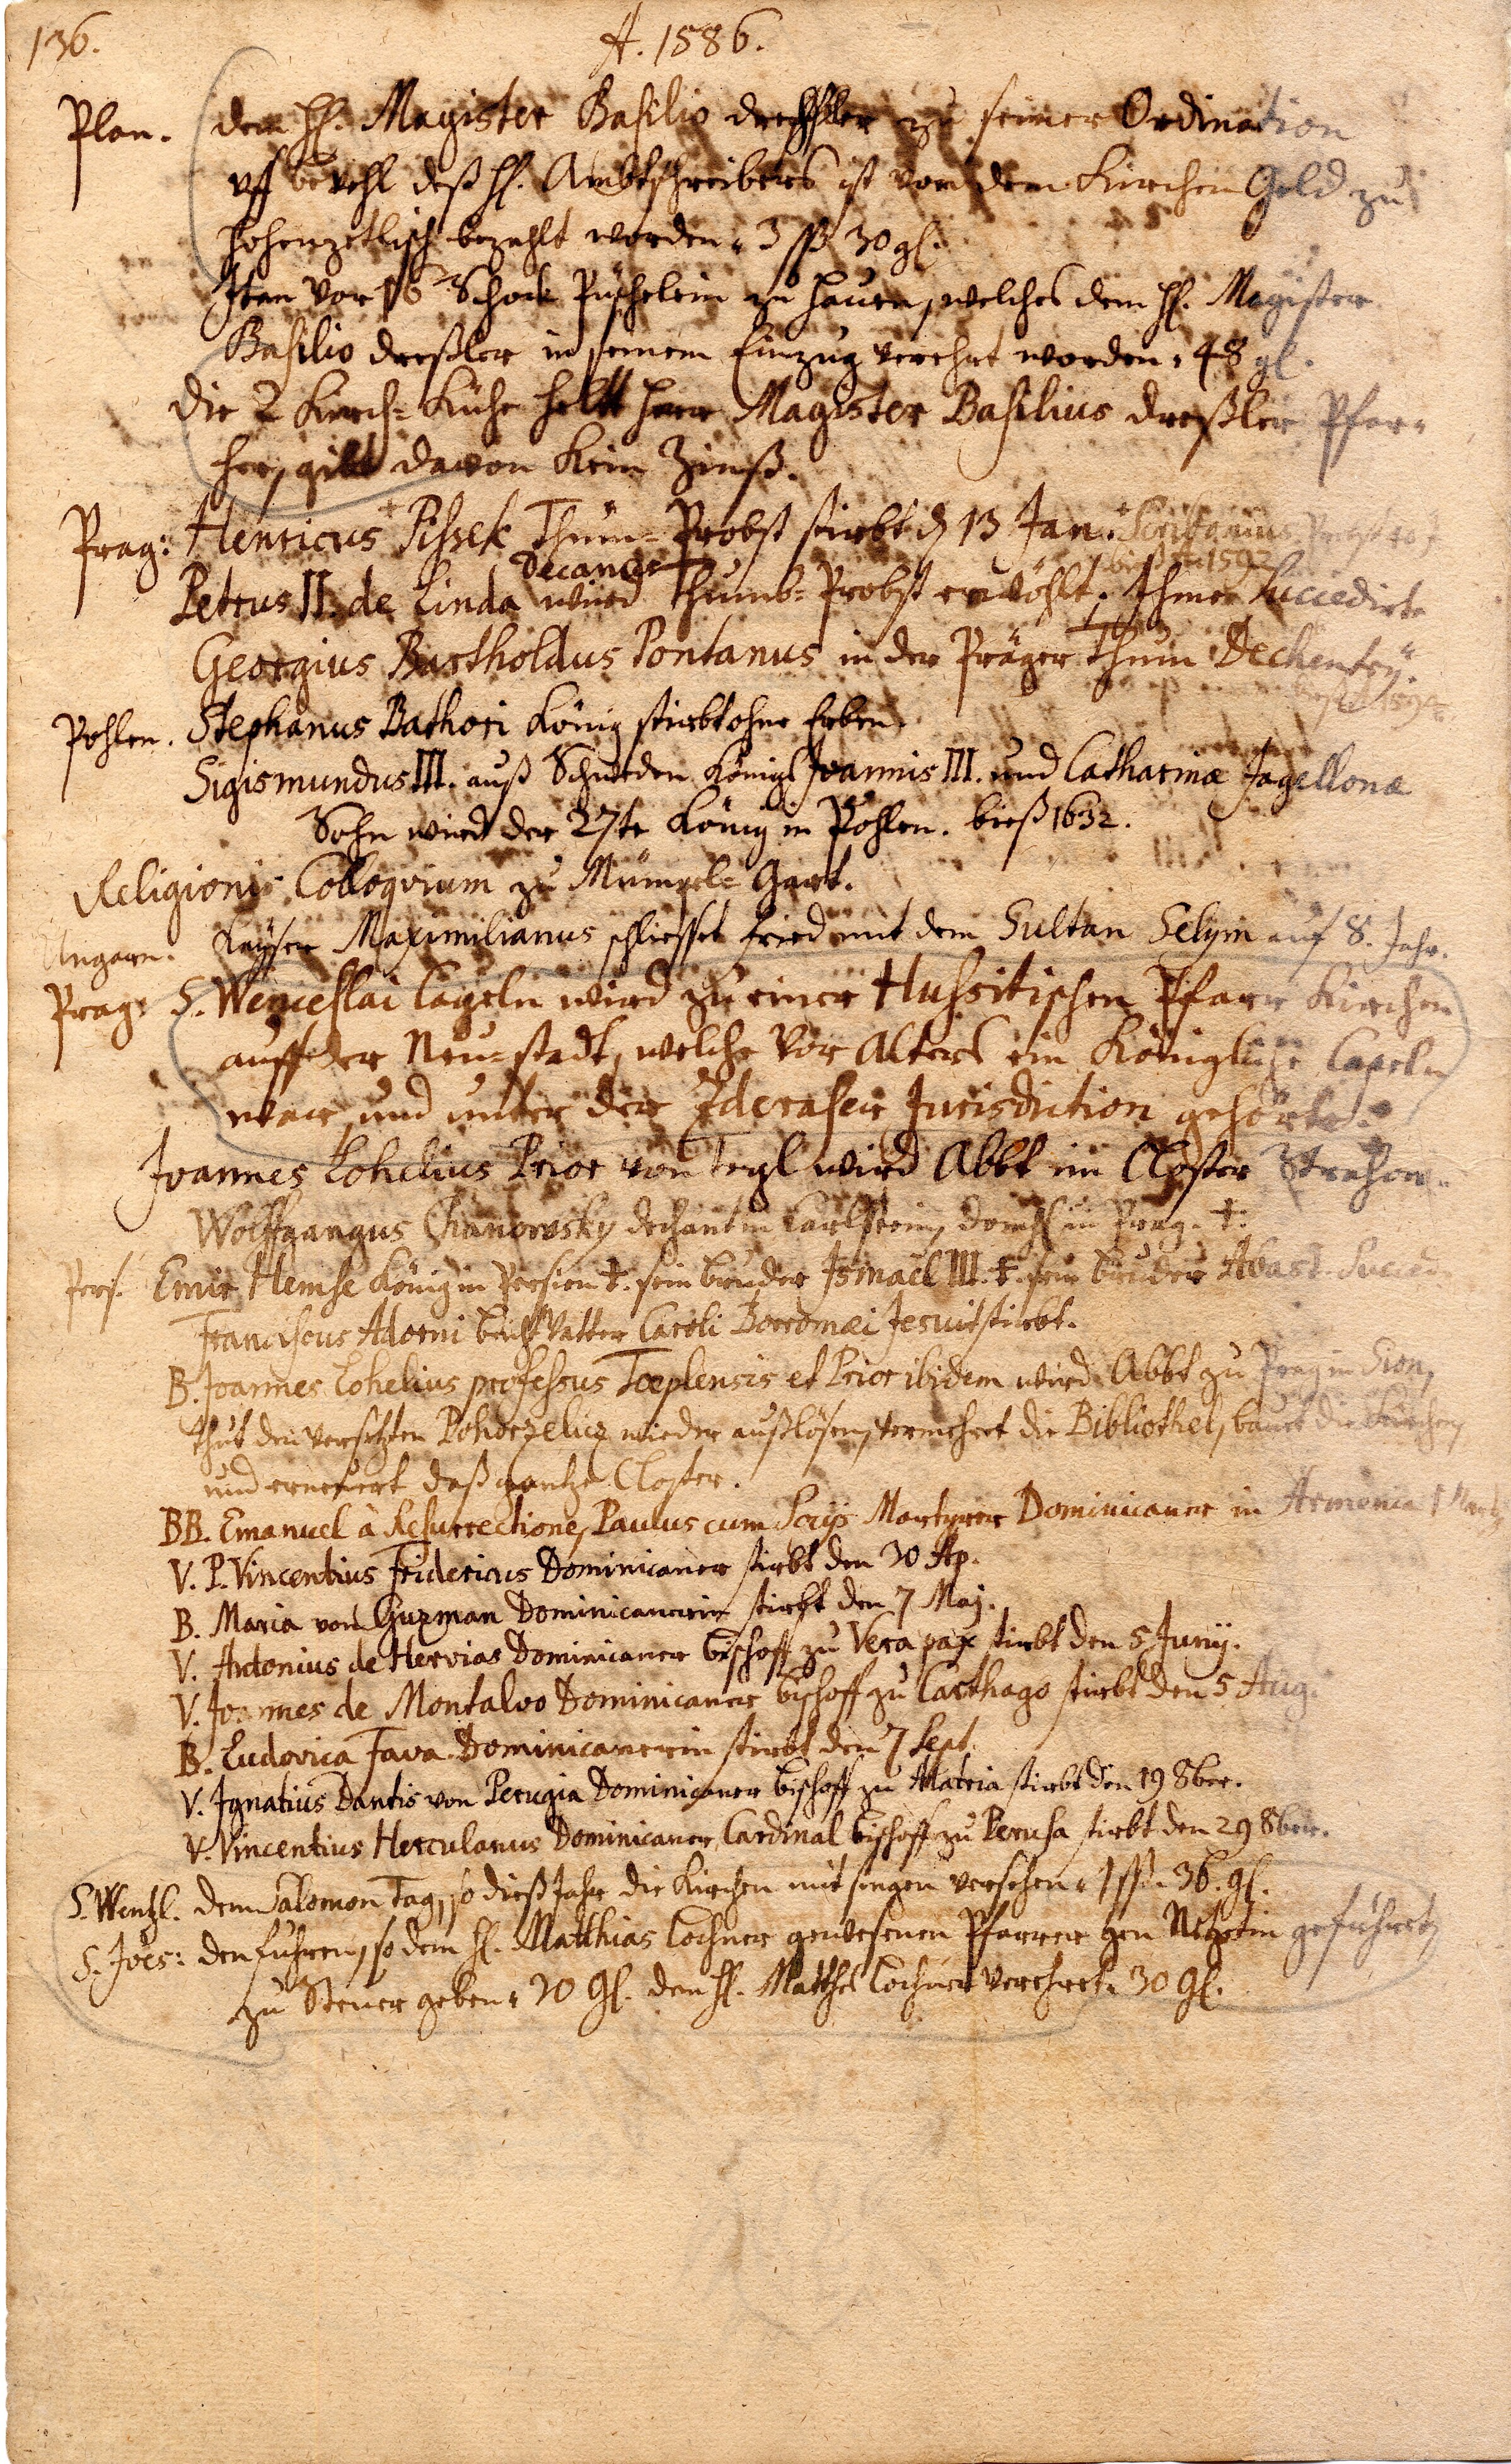 136.
A. 1586.
Plan. dem H. Magister Basilio Drechßler zu seiner Ordination
uff bevehl deß H. Ambtschreibers ist von dem Kirchen Geld zu
Hohenzetlisch bezahlt worden. 3 ßß 30 gl.
Item vor 16 Schock Püschelein zu hauen, welches dem H. Magister
Basilio Dreßler in seinem Einzug verehrt worden. 48 gl.
Die 2 Kirch=Kühe helt Herr Magister Basilius Dreßler Pfar=
her, gibt davon kein Zinß.
Prag: Henricus Pissek Thum=Probst stirbt d. 13 Jan. Scribonius
Decanus bieß 1592
Petrus II. de Linda wird Thumb=Probst erwöhlt. Ihme Succedirte
Georgius Bartholdus Pontanus in der Präger Thum Dechentey.
Pohlen. Stephanus Bathori König stirbt ohne Erben.
Sigismundus III. auß Schweden Königs Joannis III. und Catharinæ Jagellonæ
Sohn wird der 27te König in Pohlen. bieß 1632.
Religionis Colloquium zu Mümpel=Gart.
Ungarn. Kayser Maximilianus schliesset fried mit dem Sultan Selym auf 8. Jahr.
Prag: S. Wenceslai Capeln wird zu einer Hussitischen Pfarr Kirchen
auff der Neu=stadt, welche vor Alters ein Königliche Capeln
war und unter der Zderaser Jurisdiction gehörte.
Joannes Lohelius Prior von Tepl wird Abbt im Closter Strahow.
Wolffgangus Chanowsky dechant in Carlstein, in Prag. †.
Pers. Emir Hemse König in Persien †. sein bruder Ismaël III. †. sein bruder Abas Succed.
Franciscus Adorni beicht Vatter Caroli Borromæi Jesuit stirbt.
B. Joannes Lohelius professus Toeplensis et Prior ibidem wird Abbt zu Prag in Sion,
thut den versetzten Pohorzelicz wieder außlösen, vermehret die Bibliothek, bauet die Kürchen,
und erneuert daß gantze Closter.
BB. Emanuel à Resurrectione, Paulus cum Socijs Martyrer Dominicaner in Armenia 1 Martij
V. P. Vincentius Fridericus Dominicaner stirbt den 30 Ap.
B. Maria von Guzman Dominicanerin stirbt den 7 Maj.
V. Antonius de Hervias Dominicaner bischoff zu Vera pax stirbt den 5 Junij.
V. Joannes de Montalvo Dominicaner bischoff zu Carthago stirbt den 5 Aug.
B. Ludovica Fava Dominicanerin stirbt den 7 Sept.
V. Ignatius Dantis von Perugia Dominicaner bischoff zu Alatria stirbt den 19 8ber.
V. Vincentius Herculanus Dominicaner Cardinal bischoff zu Perusa stirbt den 29 8ber.
S. Wentzl. dem Salomon Tag, so dieß Jahr die Kirchen mit singen versehen. 1 ßß. 36. gl.
S. Joës: den fuhren, so dem H. Matthias Lochner gewesenen Pfarrer gen geführet,
zu Steuer geben. 20 gl. den H. Mattheß Lochner verehret. 30 gl.